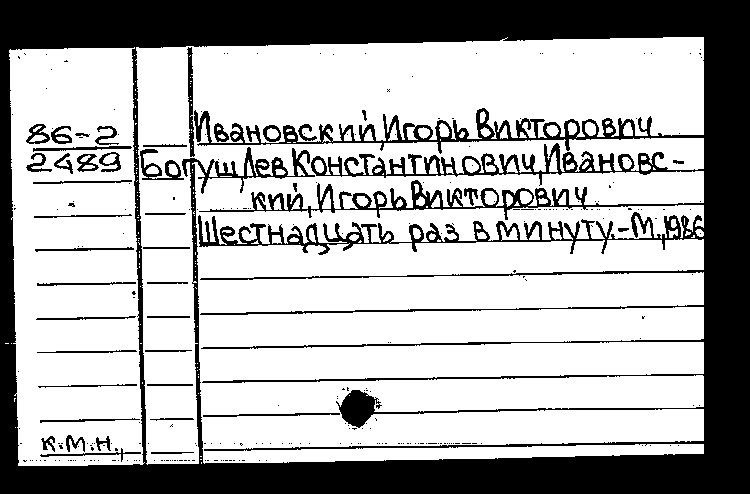 86-2 Ивановский, Игорь Викторович.
2489 Богуш, Лев Константинович, Ивановс-
кий, Игорь Викторович.
Шестнадцать раз в минуту.-М.,1986
к.м.н.,